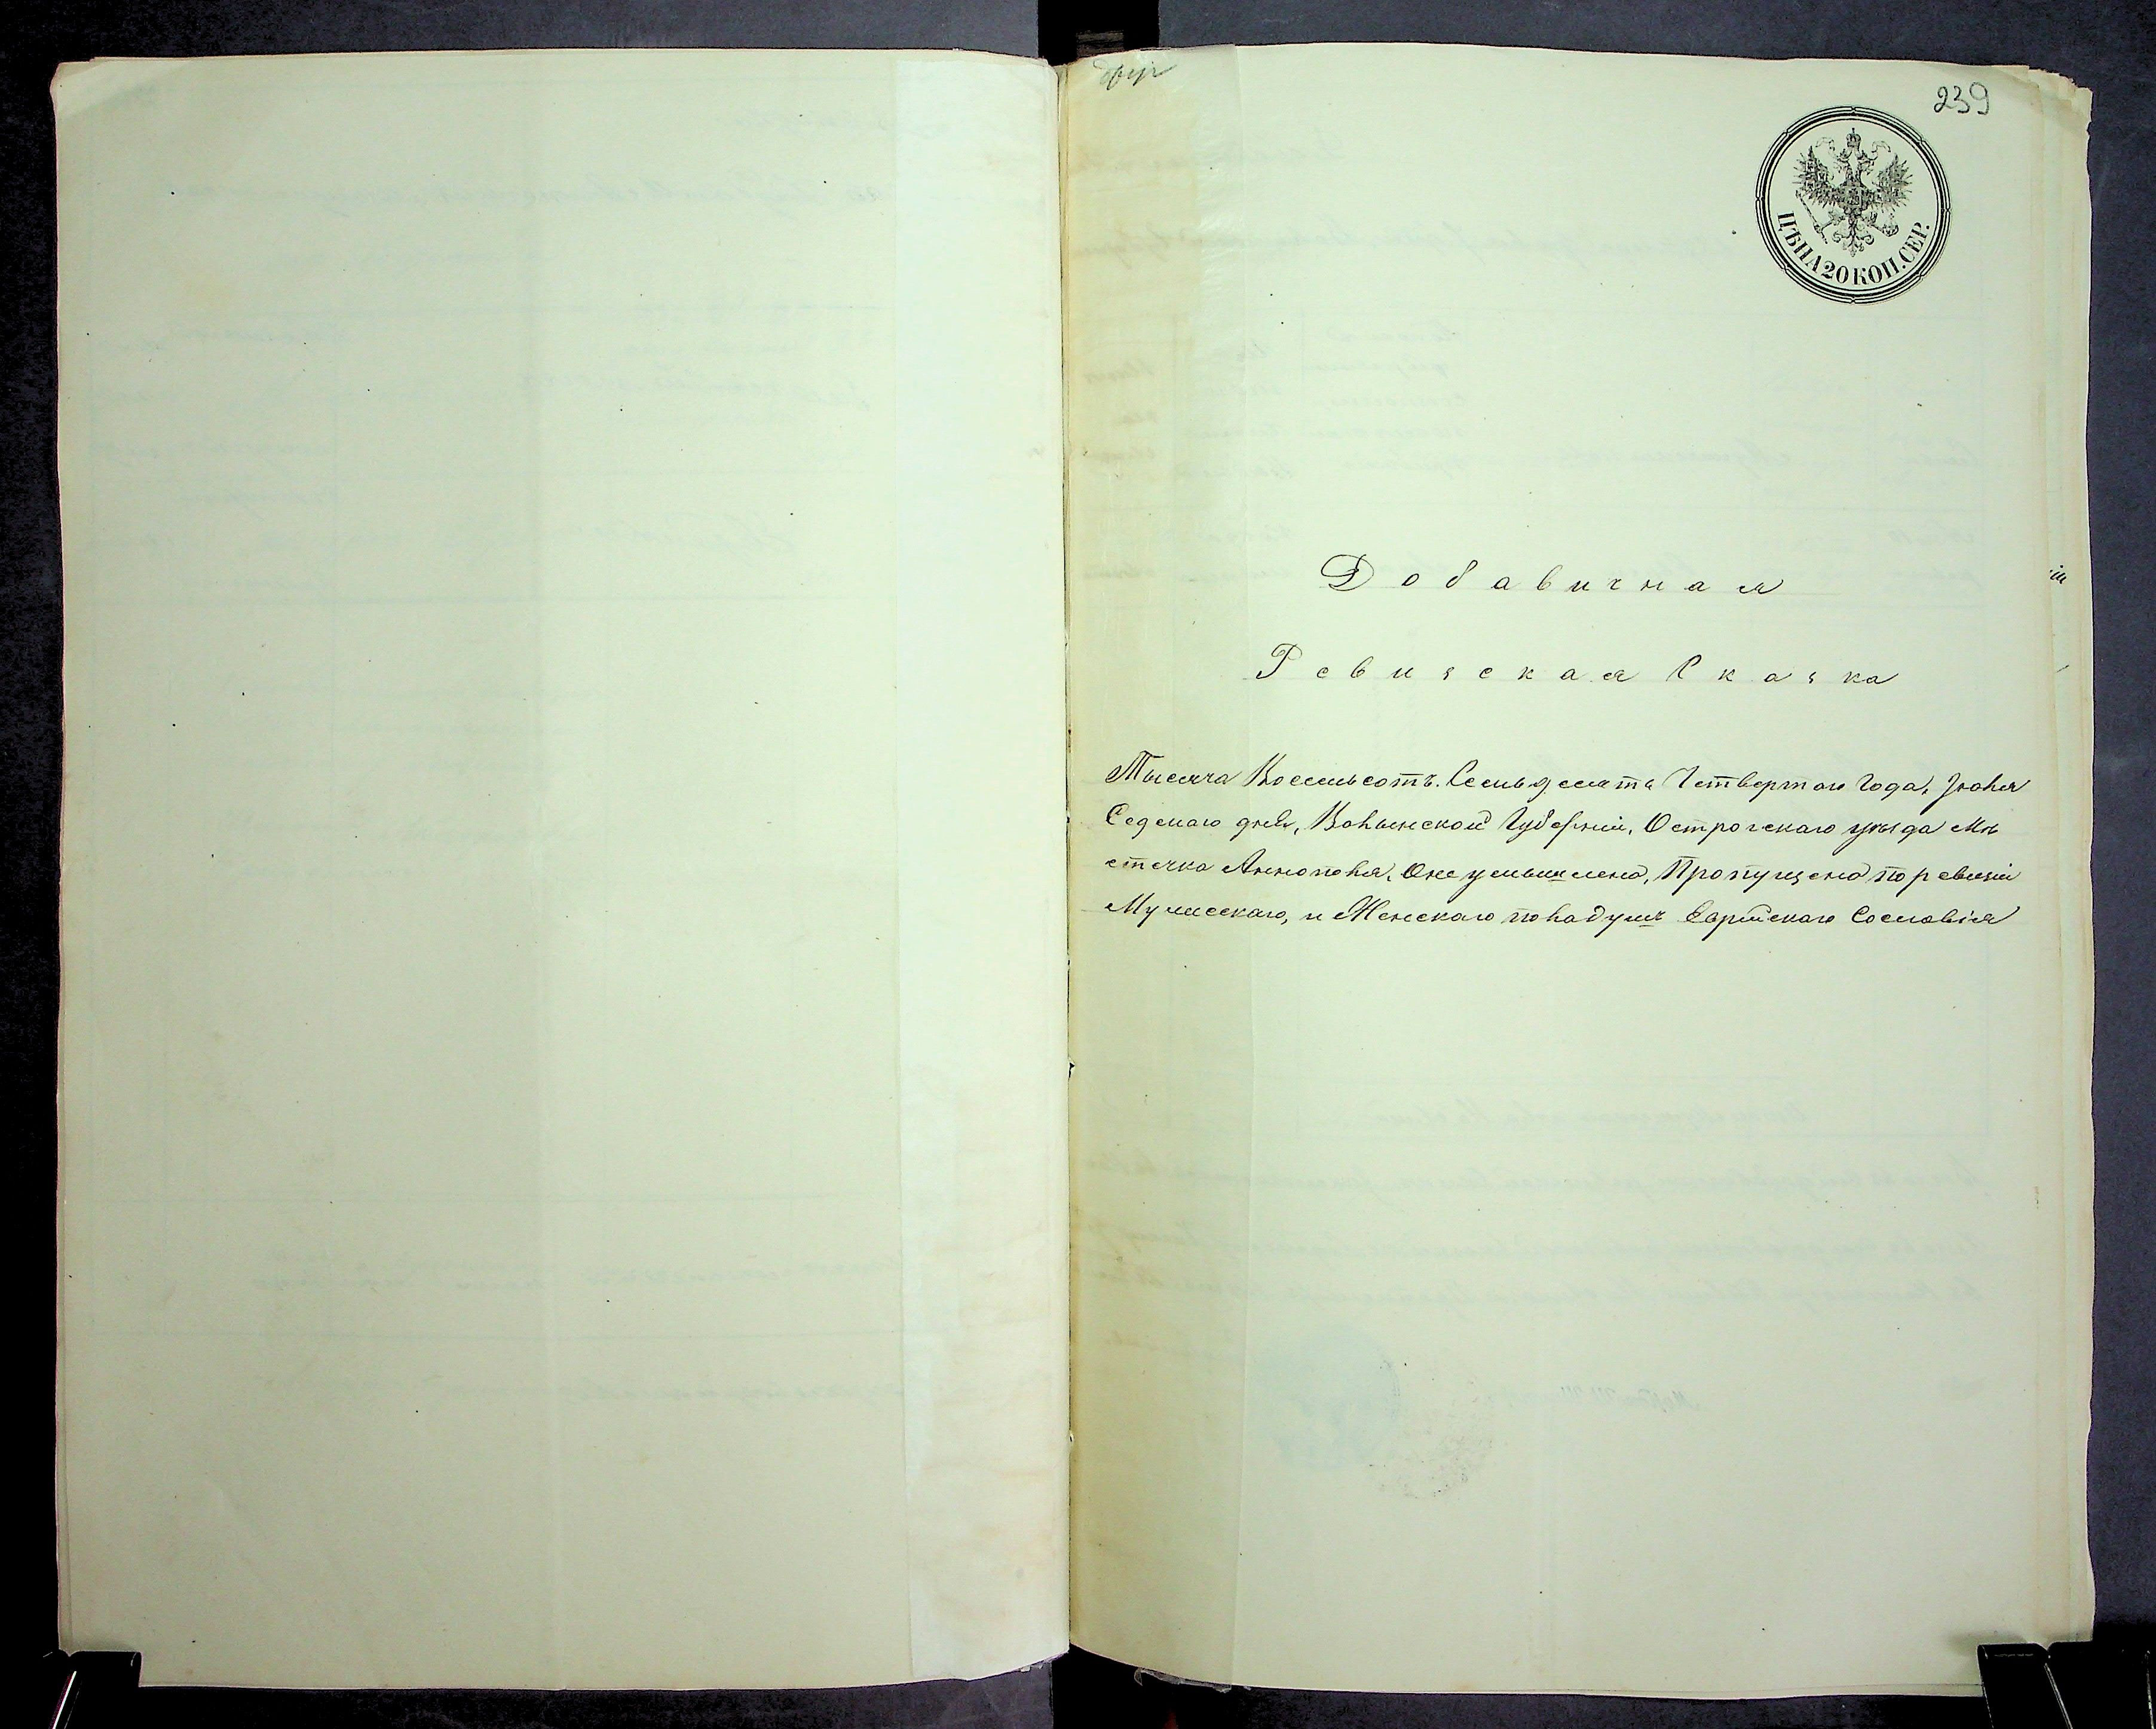 239
ЦѢНА 20 КОП. СЕР.
Добавичная
Ревизская Сказка
Тысяча Восемьсотъ Семьдесятъ Четвертаго Года, Июля
Седмаго дня, Волынской Губерніи, Острогскаго уѣзда Мѣ
стечка Аннополя, О неумышлено, Пропущено по ревизіи
Мужескаго, и Женскаго пола душъ Еврейскаго Сословія